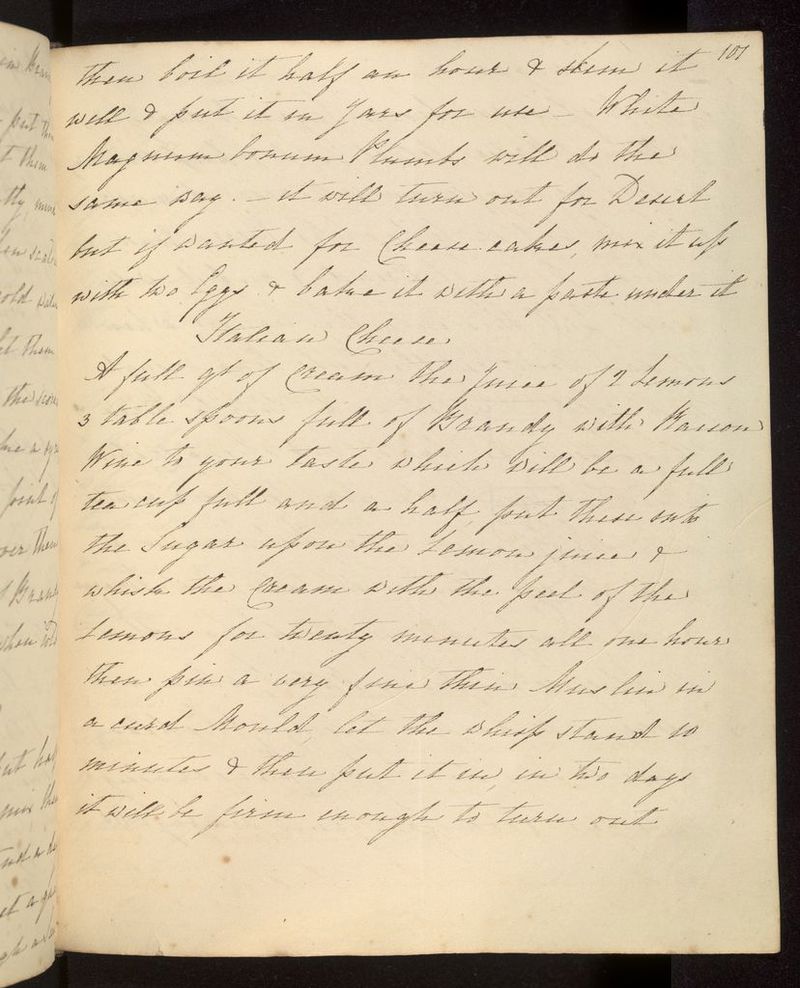 107
then boil it half an hour & skim it
well & put it in Jars for use – White
Magnum bonum Plumbs will do the
same way. – it will turn out for Desert
but if wanted for Cheese cakes, mix it up
with two Eggs & bake it with a paste under it
Italian Cheese
A full qt of Cream the Juice of 2 Lemons
3 table spoons full of Brandy with
Wine to your taste which will be a full
tea cup full and a half, put these onto
the Sugar upon the Lemon juice &
whisk the Cream with the peel of the
Lemons for twenty minutes all one hour
then pin a very fine thin Muslin in
a curd Mould, let the whip stand 10
minutes & then put it in, in two days
it will be firm enough to turn out